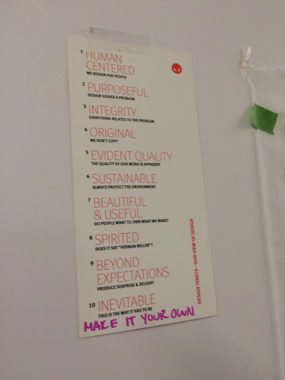 1 HUMAN
CENTERED
WE DESIGN FOR PEOPLE
2 PURPOSEFUL
DESIGN SOLVES A PROBLEM
3 INTEGRITY
EVERYTHING RELATED TO THE PROBLEM
4 ORIGINAL
WE DON'T COPY
5 EVIDENT QUALITY
THE QUALITY OF OUR WORK IS APPARENT
6 SUSTAINABLE
ALWAYS PROTECT THE ENVIRONMENT
7 BEAUTIFUL
& USEFUL
DO PEOPLE WANT TO OWN WHAT WE MAKE?
8 SPIRITED
DOES IT SAY "HERMAN MILLER"?
9 BEYOND
EXPECTATIONS
PRODUCE SURPRISE & DELIGHT
10 INEVITABLE
THIS IS THE WAY IT HAS TO BE
MAKE IT YOUR OWN
DESIGN TENETS—OUR VIEW OF DESIGN